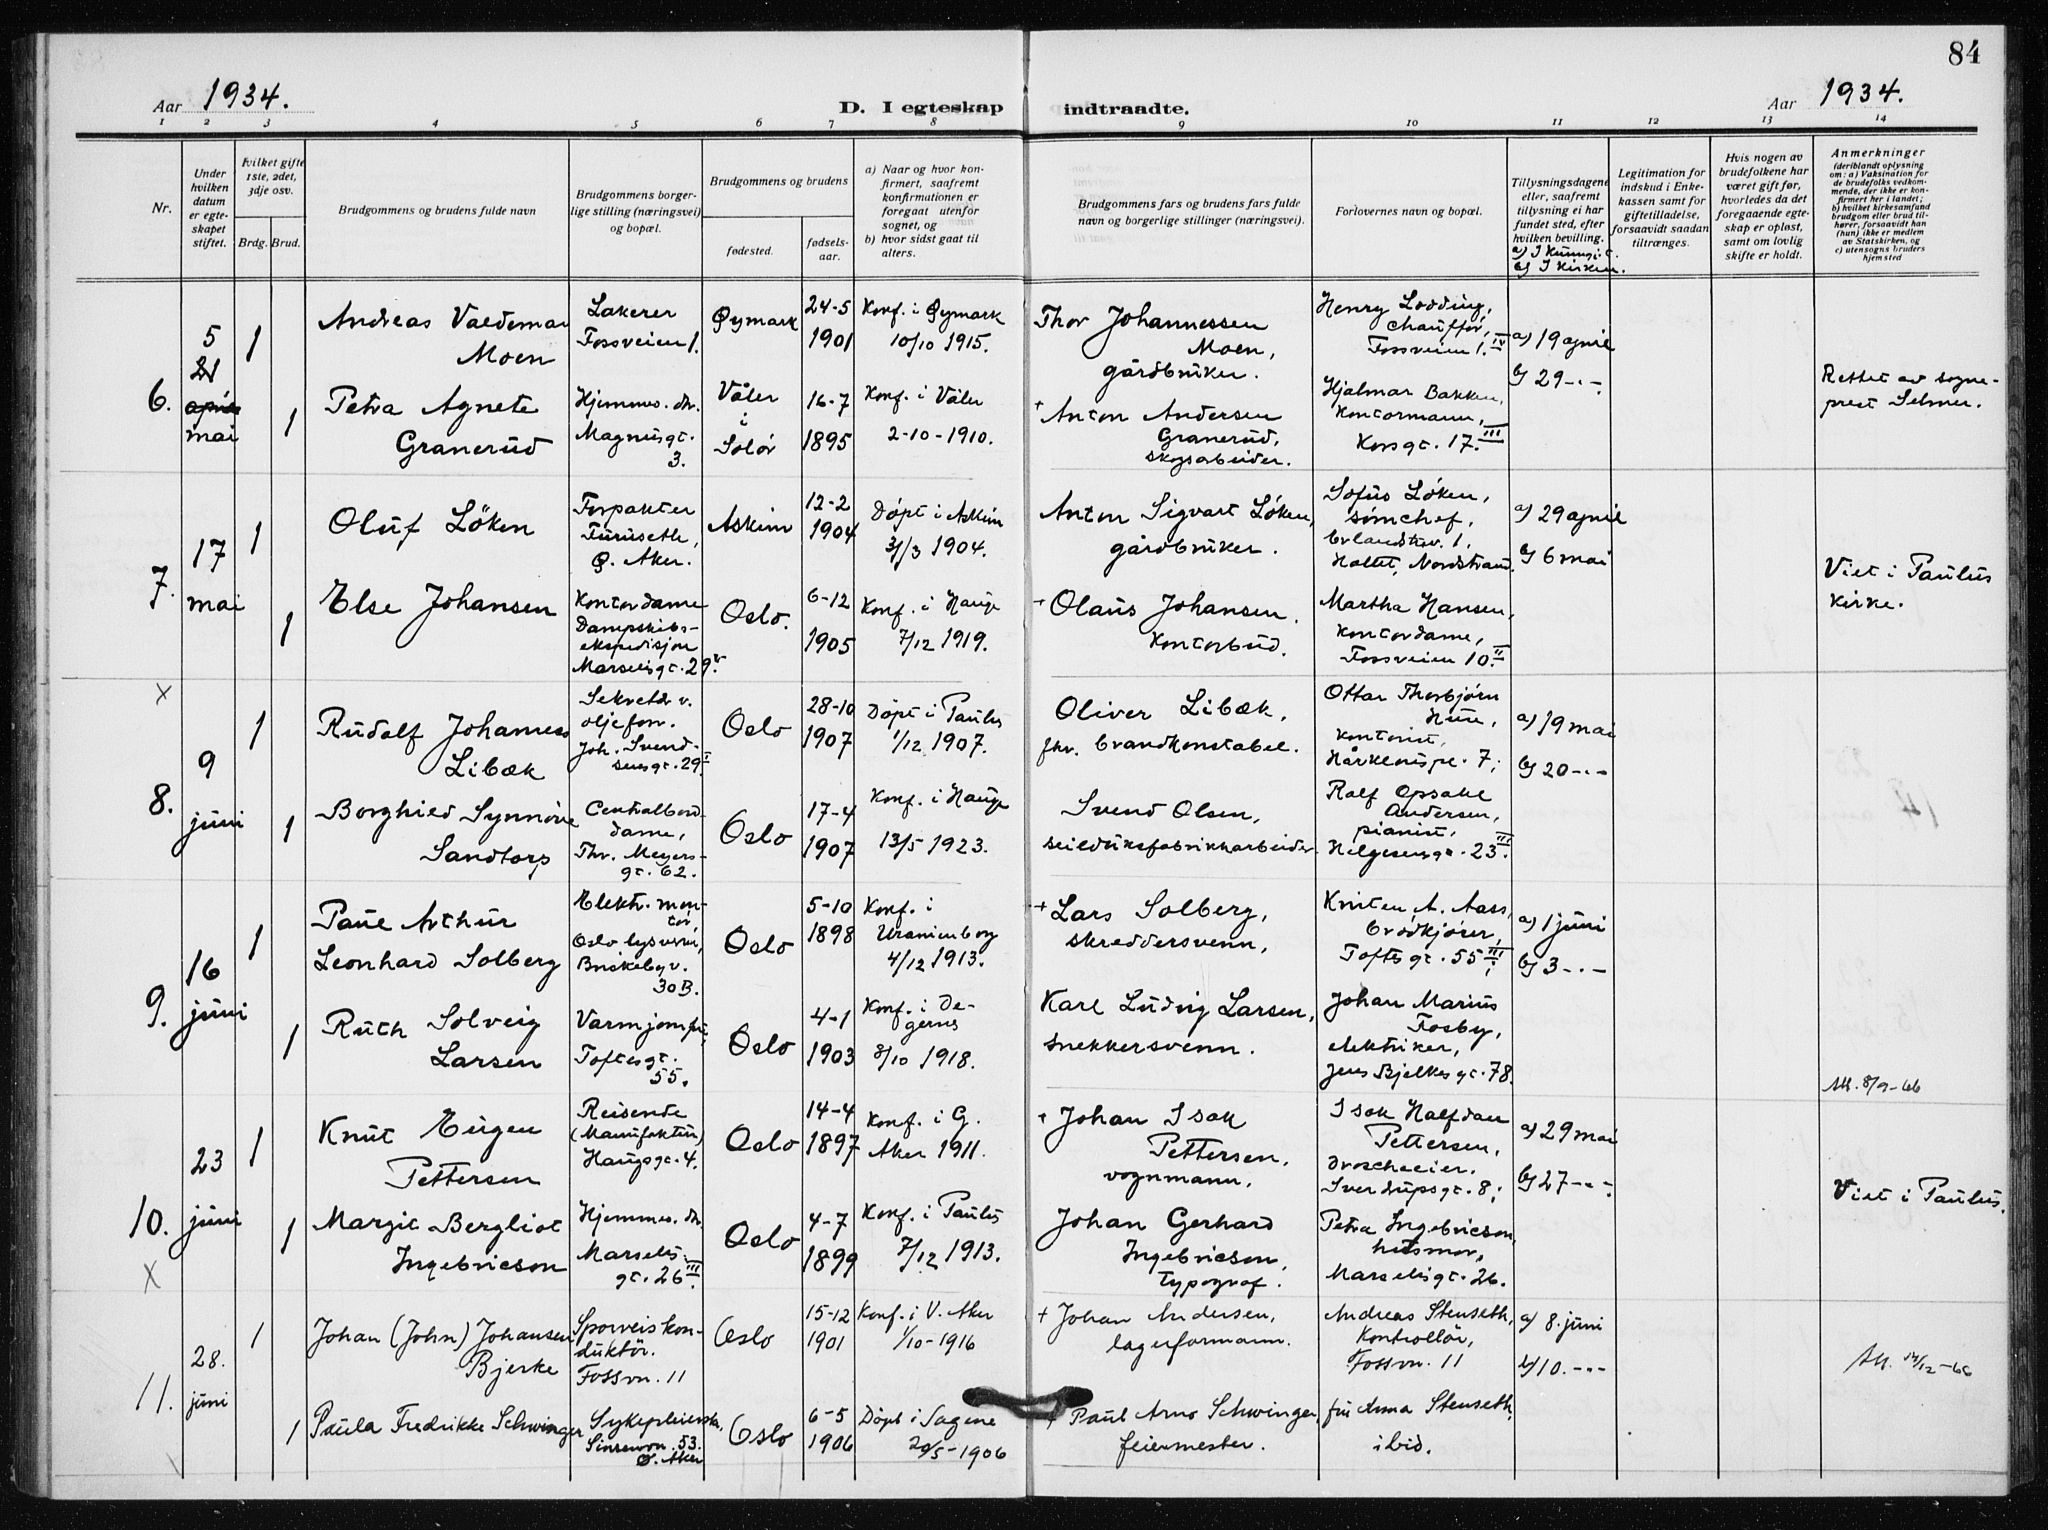 84
Aar 1934.
D. I egteskap indtraadte.
Aar 1934.
1 2 3 4 5 6 7 8 9 10 11 12 13 14
Nr.
Under
hvilken
datum
er egte-
skapet
stiftet.
Hvilket gifte
1ste, 2det,
3dje osv.
Brdg. Brud.
Brudgommens og brudens fulde navn
Brudgommens borger-
lige stilling (næringsvei)
og bopæl.
Brudgommens og brudens
fødested.
fødsels-
aar.
a) Naar og hvor kon-
firmert, saafremt
konfirmationen er
foregaat utenfor
sognet, og
b) hvor sidst gaat til
alters.
Brudgommens fars og brudens fars fulde
navn og borgerlige stillinger (næringsvei).
Forlovernes navn og bopæl.
Tillysningsdagene
eller, saafremt
tillysning ei har
fundet sted, efter
hvilken bevilling.
b) I kirken.
Legitimation for
indskud i Enke-
kassen samt for
giftetilladelse,
forsaavidt saadan
tiltrænges.
Hvis nogen av
brudefolkene har
været gift før,
hvorledes da det
foregaaende egte-
skap er opløst,
samt om lovlig
skifte er holdt.
Anmerkninger
(deriblandt oplysning
om: a) Vaksination for
de brudefolks vedkom-
mende, der ikke er kon-
firmert her i landet;
b) hvilket kirkesamfund
brudgom eller brud til-
hører, forsaavidt han
(hun) ikke er medlem
av Statskirken, og
c) utensogns bruders
hjemsted
6.
5
21
april
mai
1
Andreas Valdemar
Moen
Lakerer
Fossveien 1.
Øymark
24-5
1901
Konf. i Øymark
10/10 1915.
Thor Johannessen
Moen,
gårdbruker.
Henry Lodding,
chauffør,
Fossveien 1. IV
a) 19 april
b) 29 -"-
1
Petra Agnete
Granerud
Hjemmev. dtr.
Magnusgt.
3.
Våler
i
Solør
16-7
1895
Konf. i Våler
2-10-1910.
+ Anton Andersen
Granerud,
skogsarbeider.
Hjalmar Bakken,
kontormann,
Korsgt. 17. III
Rettet av sogne-
prest Selmer.
7.
17
mai
1
Oluf Löken
Forpakter
Furuseth,
Ø. Aker.
Askim
12-2
1904
Döpt i Askim
3/3 1904.
Anton Sigvart Löken,
gårdbruker.
Sofus Löken,
Holtet, Nordstrand
a) 29 april
b) 6 mai
1
Else Johansen
Kontordame
Dampskibs-
ekspedisjon
Marselisgt. 29 V.
Oslo.
6-12
1905
Konf. i Hauge
7/12 1919.
Olaus Johansen.
Kontorbud.
Martha Hansen,
kontordame,
Fossveien 10. II
Viet i Paulus
kirke.
x
8.
9
juni
1
Rudolf Johannes
Libæk
Sekretær v.
oljeforr.
Joh. Svend-
sensgt. 29. I
Oslo
28-10
1907
Döpt i Paulus
1/12 1907.
Oliver Libæk,
fhv. brandkonstabel.
Ottar Thorbjørn
kontorist,
a) 19 mai
b) 20 -"-
1
Borghild Synnöve
Sandtorp
Centralbord-
dame,
Thv. Meyers-
gt. 62.
Oslo
17-4
1907
Konf. i Hauge
13/5 1923.
Svend Olsen,
seilduksfabrikkarbeider
Ralf Opsahl
Andersen,
pianist,
Helgesensgt. 23. III
9.
16
juni
1
Paul Arthur
Leonhard Solberg
Elektr. mon-
tör,
Oslo lysverk,
Briskebyv.
30 B.
Oslo
5-10
1898
Konf. i
Uranienborg
4/12 1913.
+ Lars Solberg,
skreddersvenn,
Knuten A. Aass,
brödkjører,
Toftsgt. 55 III;
a) 1 juni
b) 3 -"-
1
Ruth Solveig
Larsen
Varmjomfru,
Toftesgt.
55.
Oslo
4-1
1903
Konf. i De-
gernes
8/10 1918.
Karl Ludvig Larsen,
snekkersvenn.
Johan Marius
Fosby,
elektriker,
Jens Bjelkesgt. 78.
Att. 8/9-66
10.
23
juni
1
Knut Eugen
Pettersen
Reisende
(Manufaktur)
Haugsgt. 4.
Oslo
14-4
1897
Konf. i G.
Aker 1911.
+ Johan Isak
Pettersen,
vognmann,
Isak Halfdan
Pettersen,
droscheeier.
Sverdrupsgt. 8;
a) 29 mai
b) 27 -"-
1
Margit Bergliot
Ingebricson
Hjemmev. dtr.
Marselis-
gt. 26 III
Oslo
4-7
1899
Konf. i Paulus
7/12 1913.
Johan Gerhard
Ingebricson,
typograf.
Petra Ingebricson
husmor,
Marselisgt. 26.
Viet i Paulus.
x
11.
28.
juni
1
Johan (John) Johansen
Bjerke
Sporveiskon-
duktör.
Fossvn. 11
Oslo
15-12
1901
Konf. i V. Aker
1/10-1916
+ Johan Andersen,
lagerformann.
Andreas Stenseth,
kontrollör,
Fossvn. 11
a) 8. juni
b) 10. -"-
1
Paula Fredrikke Schwinger
Sykepleierske,
Sinsenvn. 53.
Ø. Aker
Oslo
6-5
1906
Döpt i Sagene
20/5-1906
+ Paul Arno Schwinger,
feiermester.
fru Anna Stenseth,
ibid.
Att. 14/12-66